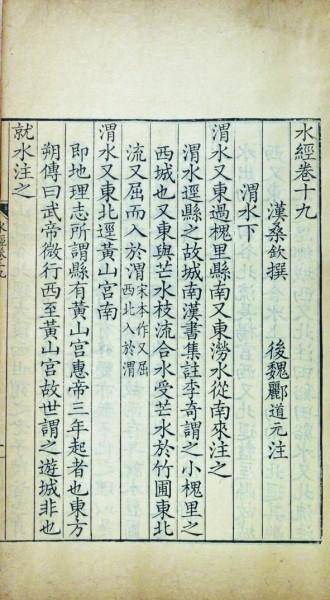 水經卷十九
漢桑欽撰 後魏酈道元注
渭水下
渭水又東過槐里縣南又東澇水從南來注之
渭水逕縣之故城南漢書集註李奇謂之小槐里之
西城也又東與芒水枝流合水受芒水於竹圃東北
流又屈而入於渭宋本作又屈西北入於渭
渭水又東北逕黃山宮南
即地理志所謂縣有黃山宮惠帝三年起者也東方
朔傳曰武帝微行西至黃山宮故世謂之遊城非也
就水注之
水經卷十九